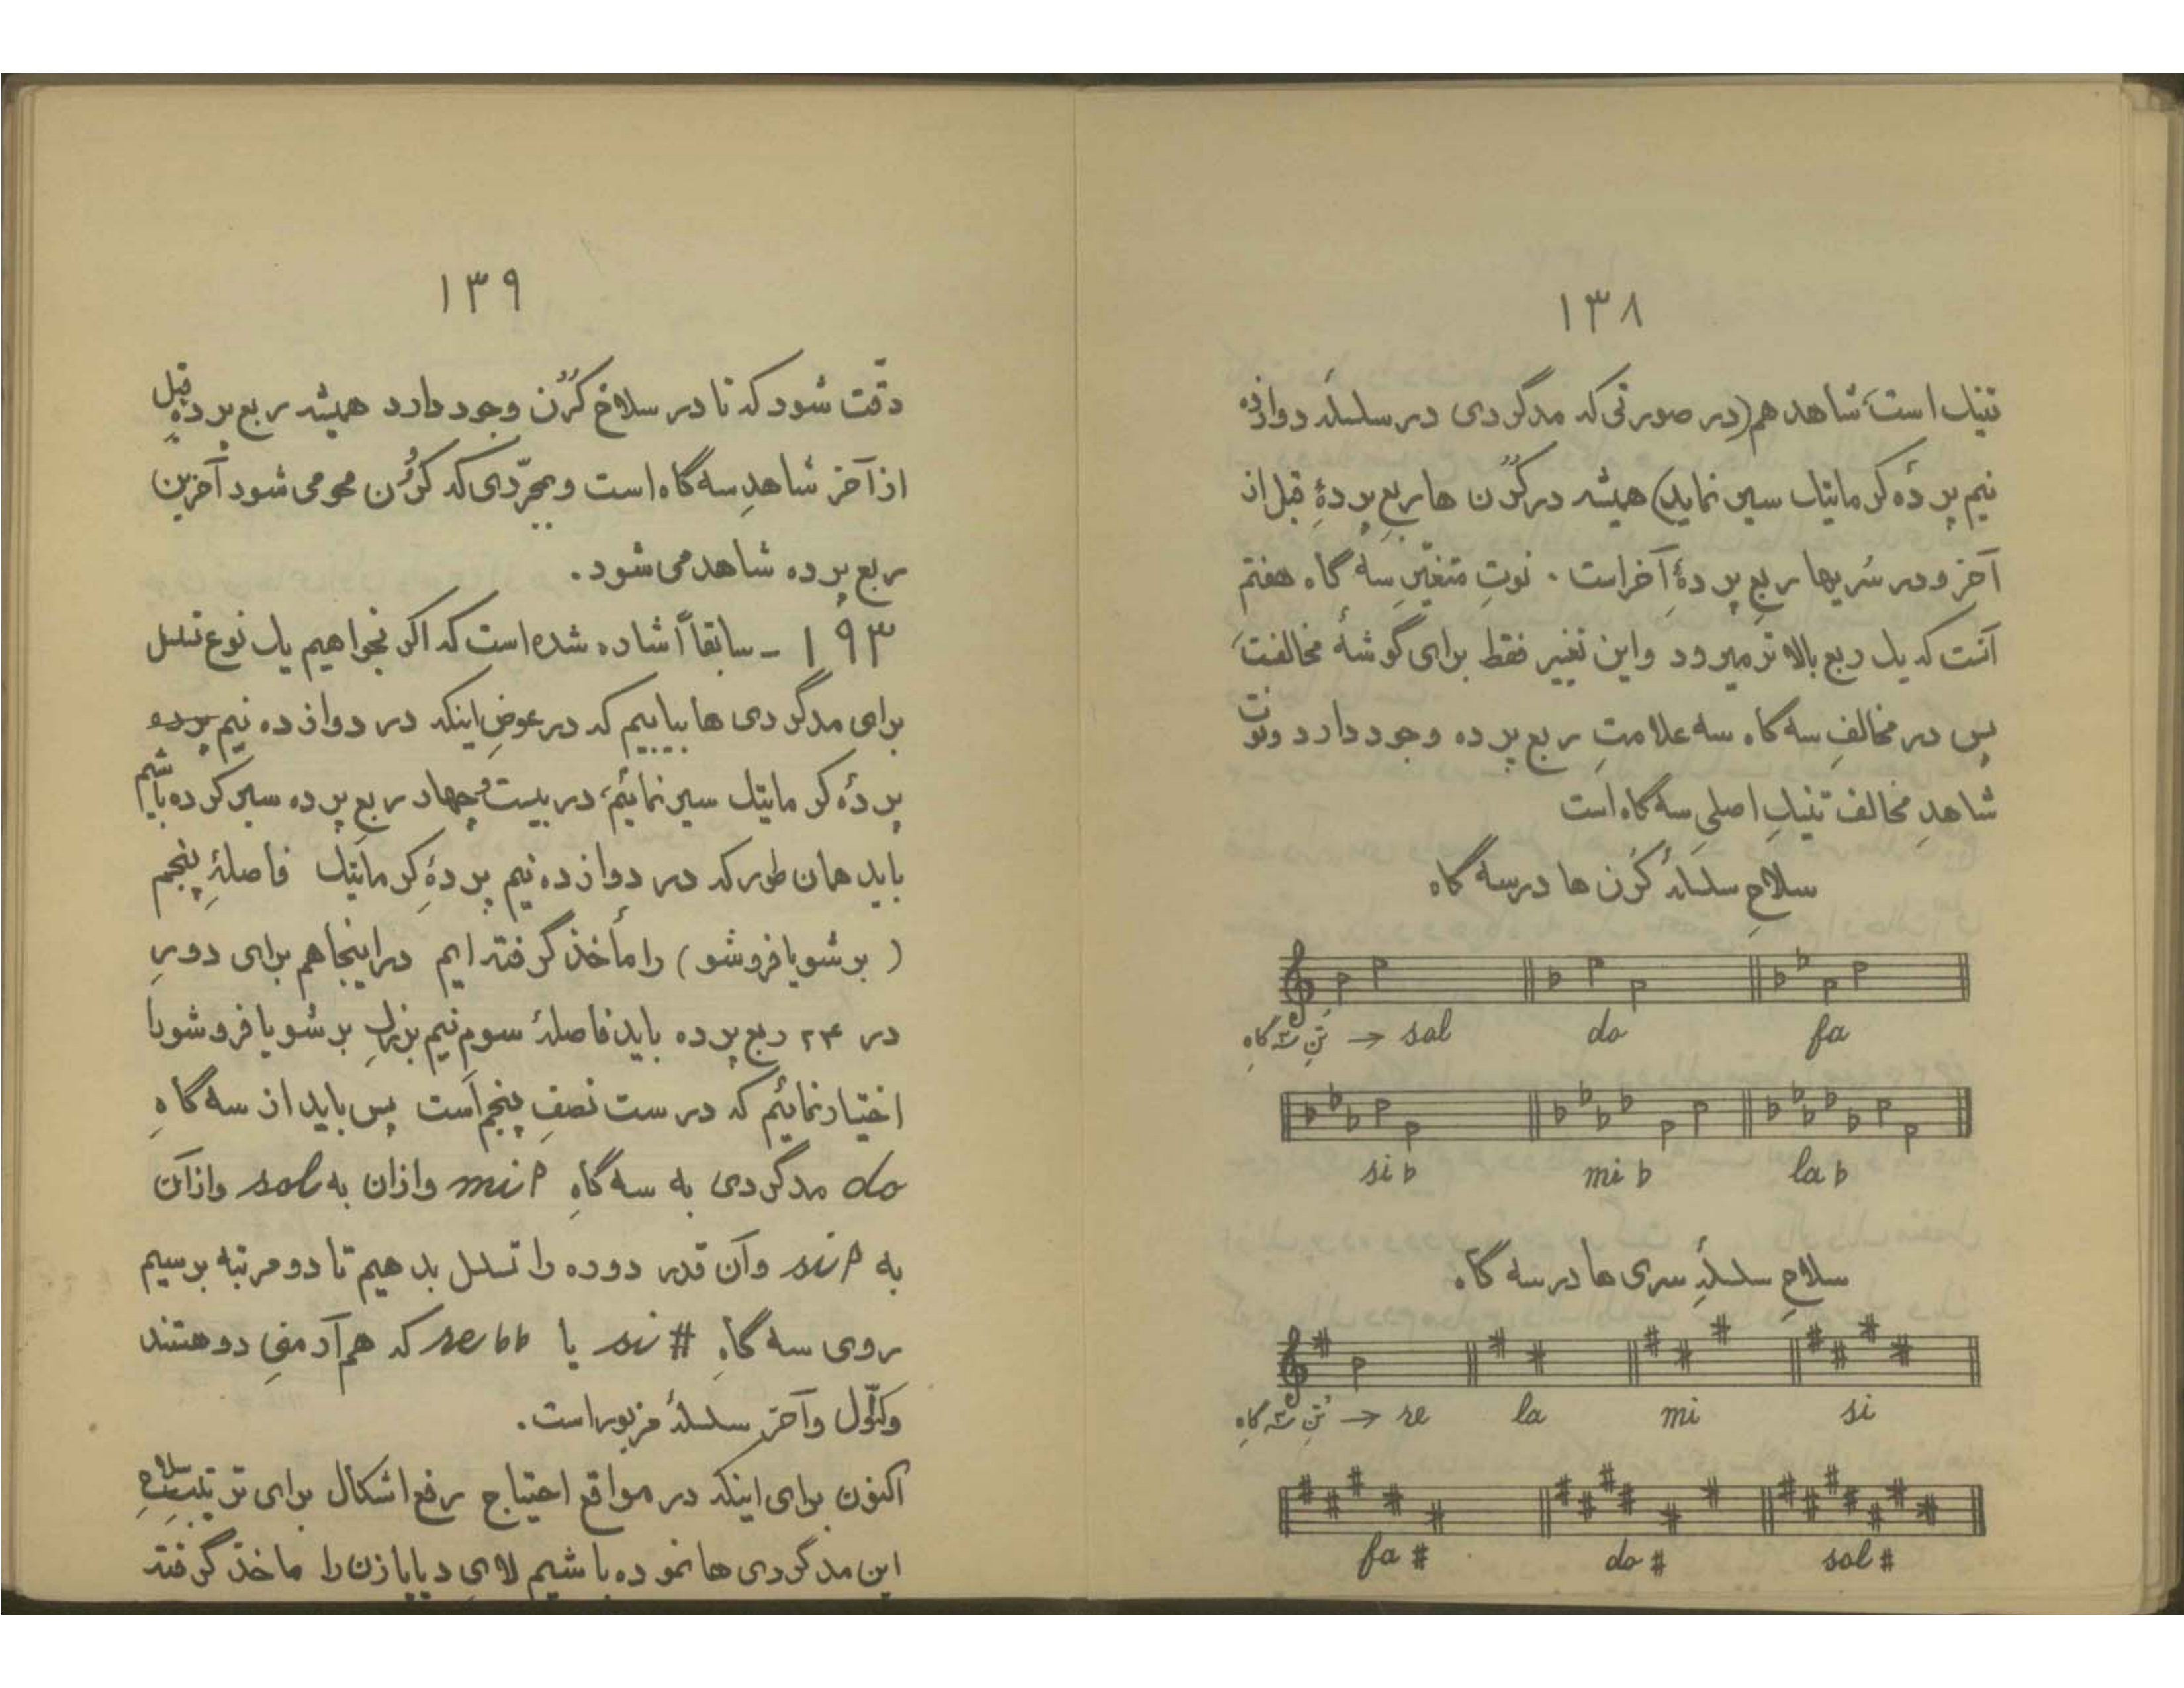 ۱۳۸
تنیک است، شاهد هم (در صورتی که مدگردی در سلسلهٔ دوازده
نیم پردهٔ کرماتیک سیر نماید) همیشه در کُرُن ها ربع پردهٔ قبل از
آخر و در سُریها ربعِ پردهٔ آخر است. نوتِ متغیّرِ سه گاه هفتم
آنست که یک ربع بالاتر میرود و این تغییر فقط برای گوشهٔ مخالفست
پس در مخالفِ سه گاه سه علامتِ ربع پرده وجود دارد و نوت
شاهدِ مخالف تنیکِ اصلیِ سه گاه است
سلاحِ سلسلهٔ کُرُن ها در سه گاه
تُنِ سه گاهِ → sol do fa
si b mi b la b
سلاحِ سلسلهٔ سری ها در سه گاه
تُنِ سه گاهِ → re la mi si
fa # do # sol #
۱۳۹
دقّت شود که تا در سلاح کُرُن وجود دارد همیشه ربع پردهٔ قبل
از آخر شاهدِ سه گاه است و بمجرّدی که کُرُن محو می شود آخرین
ربع پرده شاهد می شود.
۱۹۳ - سابقاً اشاره شده است که اگر بخواهیم یک نوع تسلسل
برای مدگردی ها بیابیم که در عوضِ اینکه در دوازده نیم پرده
پردهٔ کرماتیک سیر نمائیم، در بیست و چهار ربعِ پرده سیر کرده باشیم
باید همان طور که در دوازده نیم پردهٔ کرماتیک فاصلهٔ پنجم
( بر شو یا فرو شو ) را مأخذ گرفته ایم در اینجا هم برای دورِ
در ۲۴ ربع پرده باید فاصلهٔ سوم نیم بزرگِ بر شو یا فرو شو را
اختیار نمائیم که درست نصفِ پنجم است پس باید از سه گاهِ
do مدگردی به سه گاهِ miP و ازان به sol و ازآن
به siP و آن قدر دوره را تسلسل بدهیم تا دو مرتبه برسیم
روی سه گاهِ si # یا re bb که هم آرمنیِ دو هستند
و کاول و آخر سلسلهٔ مزبور است.
اکنون برای اینکه در مواقع احتیاج رفع اشکال برای ترتیبِ سلاحِ
این مدگردی ها نموده باشیم لایِ دیاپازن را ماخذ گرفته